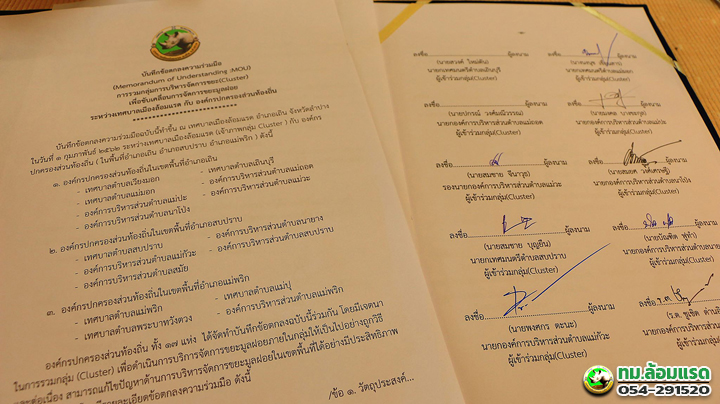 บันทึกข้อตกลงความร่วมมือ
(Memorandum of Understanding :MOU)
การรวมกลุ่มการบริหารจัดการขยะ(Cluster)
เพื่อขับเคลื่อนการจัดการขยะมูลฝอย
ระหว่างเทศบาลเมืองล้อมแรด กับ องค์กรปกครองส่วนท้องถิ่น
บันทึกข้อตกลงความร่วมมือฉบับนี้ทำขึ้น ณ เทศบาลเมืองล้อมแรด อำเภอเถิน จังหวัดลำปาง
ในวันที่ ๑ กุมภาพันธ์ ๒๕๖๒ ระหว่างเทศบาลเมืองล้อมแรด (เจ้าภาพกลุ่ม Cluster ) กับ องค์กร
ปกครองส่วนท้องถิ่น ( ในพื้นที่อำเภอเถิน อำเภอสบปราบ อำเภอแม่พริก ) ดังนี้
๑. องค์กรปกครองส่วนท้องถิ่นในเขตพื้นที่อำเภอเถิน
- เทศบาลตำบลเวียงมอก - เทศบาลตำบลเถินบุรี
- เทศบาลตำบลแม่มอก - องค์การบริหารส่วนตำบลแม่ถอด
- องค์การบริหารส่วนตำบลแม่ปะ - องค์การบริหารส่วนตำบลแม่วะ
- องค์การบริหารส่วนตำบลนาโป่ง
๒. องค์กรปกครองส่วนท้องถิ่นในเขตพื้นที่อำเภอสบปราบ
- เทศบาลตำบลสบปราบ - องค์การบริหารส่วนตำบลนายาง
- องค์การบริหารส่วนตำบลแม่กัวะ - องค์การบริหารส่วนตำบลสบปราบ
- องค์การบริหารส่วนตำบลสมัย
๓. องค์กรปกครองส่วนท้องถิ่นในเขตพื้นที่อำเภอแม่พริก
- เทศบาลตำบลแม่พริก - เทศบาลตำบลแม่ปุ
- เทศบาลตำบลพระบาทวังตวง - องค์การบริหารส่วนตำบลแม่พริก
องค์กรปกครองส่วนท้องถิ่น ทั้ง ๑๗ แห่ง ได้จัดทำบันทึกข้อตกลงฉบับนี้ร่วมกัน โดยมีเจตนา
ในการรวมกลุ่ม (Cluster) เพื่อดำเนินการบริการจัดการขยะมูลฝอยภายในกลุ่มให้เป็นไปอย่างถูกวิธี
และต่อเนื่อง สามารถแก้ไขปัญหาด้านการบริหารจัดการขยะมูลฝอยในเขตพื้นที่ได้อย่างมีประสิทธิภาพ
รายละเอียดข้อตกลงความร่วมมือ ดังนี้
/ข้อ ๑. วัตถุประสงค์...
ลงชื่อ ผู้ลงนาม
นายกเทศมนตรีตำบลเถินบุรี
ผู้เข้าร่วมกลุ่ม(Cluster)
ลงชื่อ ผู้ลงนาม
นายกเทศมนตรีตำบลแม่มอก
ผู้เข้าร่วมกลุ่ม(Cluster)
ลงชื่อ ผู้ลงนาม
(นายปกรณ์ วงศ์มณีวรรณ)
นายกองค์การบริหารส่วนตำบลแม่ถอด
ผู้เข้าร่วมกลุ่ม(Cluster)
ลงชื่อ ผู้ลงนาม
นายกองค์การบริหารส่วนตำบลแม่ปะ
ผู้เข้าร่วมกลุ่ม(Cluster)
ลงชื่อ ผู้ลงนาม
(นายสมชาย จีนาวุธ)
รองนายกองค์การบริหารส่วนตำบลแม่วะ
ผู้เข้าร่วมกลุ่ม(Cluster)
ลงชื่อ ผู้ลงนาม
นายกองค์การบริหารส่วนตำบลนาโป่ง
ผู้เข้าร่วมกลุ่ม(Cluster)
ลงชื่อ ผู้ลงนาม
(นายสมชาย บุญยืน)
นายกเทศมนตรีตำบลสบปราบ
ผู้เข้าร่วมกลุ่ม(Cluster)
ลงชื่อ ผู้ลงนาม
(นายบัณฑิต ฟูทำ)
นายกองค์การบริหารส่วนตำบลนายาง
ผู้เข้าร่วมกลุ่ม(Cluster)
ลงชื่อ ผู้ลงนาม
(นายพงศกร คะนะ)
นายกองค์การบริหารส่วนตำบลแม่กัวะ
ผู้เข้าร่วมกลุ่ม(Cluster)
ลงชื่อ
นายกองค์การบริหารส่วนตำบล
ทม.ล้อมแรด
054-291520